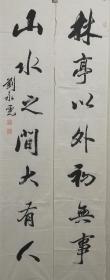 林亭以外初無事
山水之間大有人
劉永亮